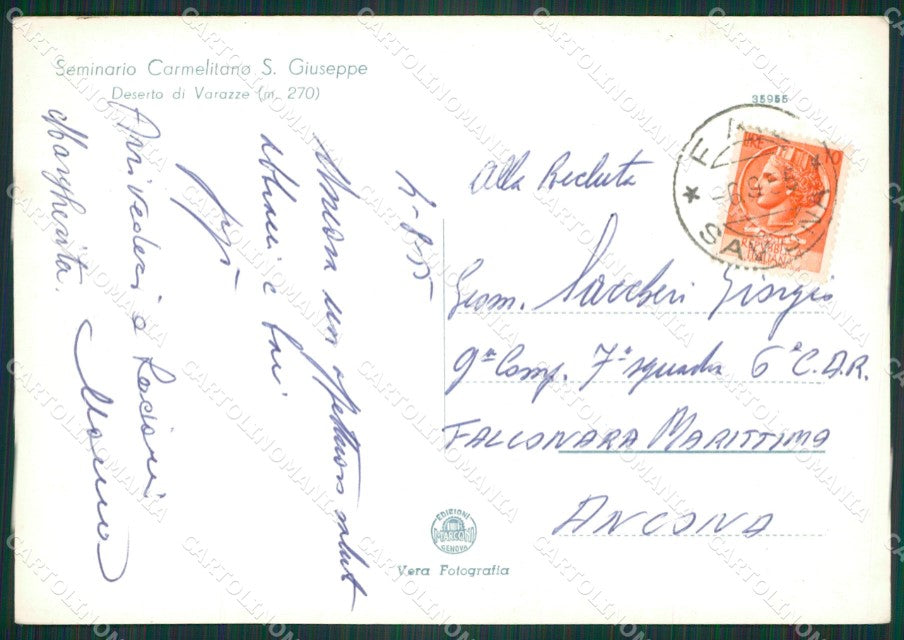 Seminario Carmelitano S. Giuseppe
Deserto di Varazze (m. 270)
35955
4-8-55
Ancora un affettuoso saluto
Arrivederci a
Margherita.
Alla Recluta
Geom. Saccheri Giorgio
9ª Comp. 7ª squadra 6° C.A.R.
FALCONARA MARITTIMA
ANCONA
EDIZIONI
MARCONI
GENOVA
Vera Fotografia
CARTOLINOMANIA